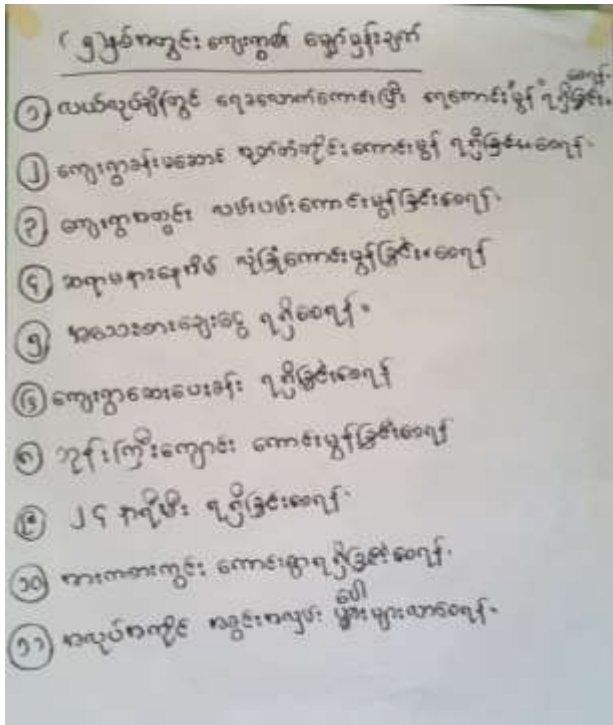 (၅)နှစ်အတွင်း ကျေးရွာ၏ မျှော်မှန်းချက်
စေရန်
၁ လယ်လုပ်ချိန်တွင် ရေသောက်ကောင်းပြီး ရေကောင်းမွန် ရရှိခြင်း။
၂ ကျေးရွာခန်းမဆောင် ကောင်းမွန် ရရှိခြင်းစေရန်။
၃ ကျေးရွာအတွင်း လမ်းပမ်းကောင်းမွန်ခြင်းစေရန်။
၄ ဆရာမများနေအိမ် လုံခြုံကောင်းမွန်ခြင်းစေရန်
၅ အသေးစားချေးငွေ ရရှိစေရန်။
၆ ကျေးရွာဆေးပေးခန်း ရရှိခြင်းစေရန်
၈ ဘုန်းကြီးကျောင်း ကောင်းမွန်ခြင်းစေရန်
၂၄ နာရီမီး ရရှိခြင်းစေရန်။
၁၀ အားကစားကွင်း ကောင်းစွာရရှိခြင်းစေရန်။
ပေါ
၁၁ အလုပ်အကိုင် အခွင့်အလမ်း များလာစေရန်။